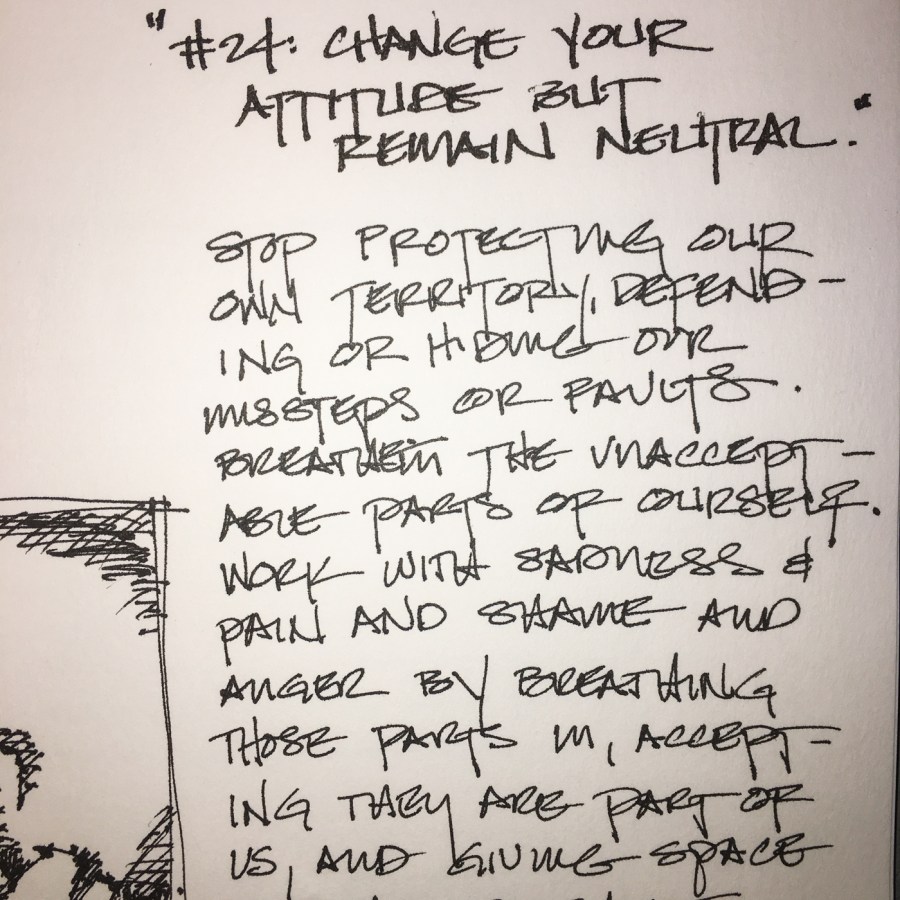 "#24: CHANGE YOUR
ATTITUDE BUT
REMAIN NEUTRAL."
STOP PROTECTING OUR
OWN TERRITORY, DEFEND-
ING OR HIDING OUR
MISSTEPS OR FAULTS.
BREATHE IN THE UNACCEPT-
ABLE PARTS OF OURSELF.
WORK WITH SADNESS &
PAIN AND SHAME AND
ANGER BY BREATHING
THOSE PARTS IN, ACCEPT-
ING THEY ARE PART OF
US, AND GIVING SPACE